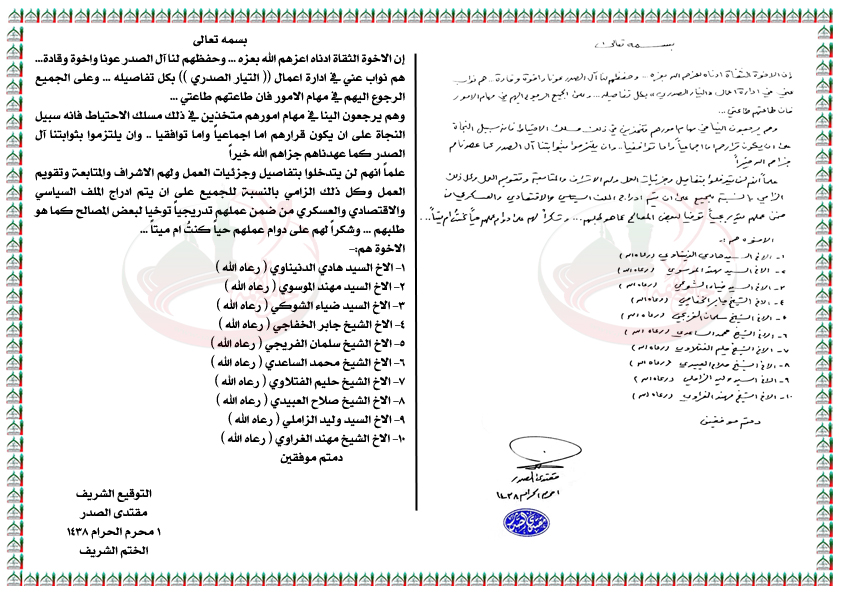 بسمه تعالى
إن الاخوة الثقاة ادناه اعزهم الله بعزه ... وحفظهم لنا آل الصدر عونا واخوة وقادة...
هم نواب عني في ادارة اعمال (( التيار الصدري )) بكل تفاصيله ... وعلى الجميع
الرجوع اليهم في مهام الامور فان طاعتهم طاعتي ...
وهم يرجعون الينا في مهام امورهم متخذين في ذلك مسلك الاحتياط فانه سبيل
النجاة على ان يكون قرارهم اما اجماعياً واما توافقيا .. وان يلتزموا بثوابتنا آل
الصدر كما عهدناهم جزاهم الله خيراً
علماً انهم لن يتدخلوا بتفاصيل وجزئيات العمل ولهم الاشراف والمتابعة وتقويم
العمل وكل ذلك الزامي بالنسبة للجميع على ان يتم ادراج الملف السياسي
والاقتصادي والعسكري من ضمن عملهم تدريجياً توخيا لبعض المصالح كما هو
طلبهم ... وشكراً لهم على دوام عملهم حياً كنتُ ام ميتاً ...
الاخوة هم:-
١- الاخ السيد هادي الدنيناوي ( رعاه الله )
٢- الاخ السيد مهند الموسوي ( رعاه الله )
٣- الاخ السيد ضياء الشوكي ( رعاه الله )
٤- الاخ الشيخ جابر الخفاجي ( رعاه الله )
٥- الاخ الشيخ سلمان الفريجي ( رعاه الله )
٦- الاخ الشيخ محمد الساعدي ( رعاه الله )
٧- الاخ الشيخ حليم الفتلاوي ( رعاه الله )
٨- الاخ الشيخ صلاح العبيدي ( رعاه الله )
٩- الاخ السيد وليد الزاملي ( رعاه الله )
١٠- الاخ الشيخ مهند الغراوي ( رعاه الله )
دمتم موفقين
التوقيع الشريف
مقتدى الصدر
١ محرم الحرام ١٤٣٨
الختم الشريف
بسمه تعالى
إن الاخوة الثقاة ادناه اعزهم الله بعزه ... وحفظهم لنا آل الصدر عونا واخوة وقادة ... هم نواب
عني في ادارة اعمال (( التيار الصدري )) بكل تفاصيله ... وعلى الجميع الرجوع اليهم في مهام الامور
فان طاعتهم طاعتي ...
وهم يرجعون الينا في مهام امورهم متخذين في ذلك مسلك الاحتياط فانه سبيل النجاة
على ان يكون قرارهم اما اجماعياً واما توافقياً .. وان يلتزموا بثوابتنا آل الصدر كما عهدناهم
جزاهم الله خيراً
علماً انهم لن يتدخلوا بتفاصيل وجزئيات العمل ولهم الاشراف والمتابعة وتقويم العمل وكل ذلك
الزامي بالنسبة للجميع على ان يتم ادراج الملف السياسي والاقتصادي والعسكري من
ضمن عملهم تدريجياً توخياً لبعض المصالح كما هو طلبهم ... وشكراً لهم على دوام عملهم حياً كنتُ ام ميتاً ...
الاخوة هم :-
١- الاخ السيد هادي الدنيناوي ( رعاه الله )
٢- الاخ السيد مهند الموسوي ( رعاه الله )
٣- الاخ السيد ضياء الشوكي ( رعاه الله )
٤- الاخ الشيخ جابر الخفاجي ( رعاه الله )
٥- الاخ الشيخ سلمان الفريجي ( رعاه الله )
٦- الاخ الشيخ محمد الساعدي ( رعاه الله )
٧- الاخ الشيخ حليم الفتلاوي ( رعاه الله )
٨- الاخ الشيخ صلاح العبيدي ( رعاه الله )
٩- الاخ السيد وليد الزاملي ( رعاه الله )
١٠- الاخ الشيخ مهند الغراوي ( رعاه الله )
دمتم موفقين
مقتدى الصدر
١ محرم الحرام ١٤٣٨